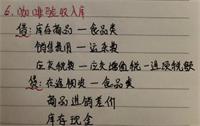 6. 咖啡验收入库
借: 库存商品 — 食品类
销售费用 — 运杂费
应交税费 — 应交增值税 — 进项税额
贷: 在途物资 — 食品类
商品进销差价
库存现金